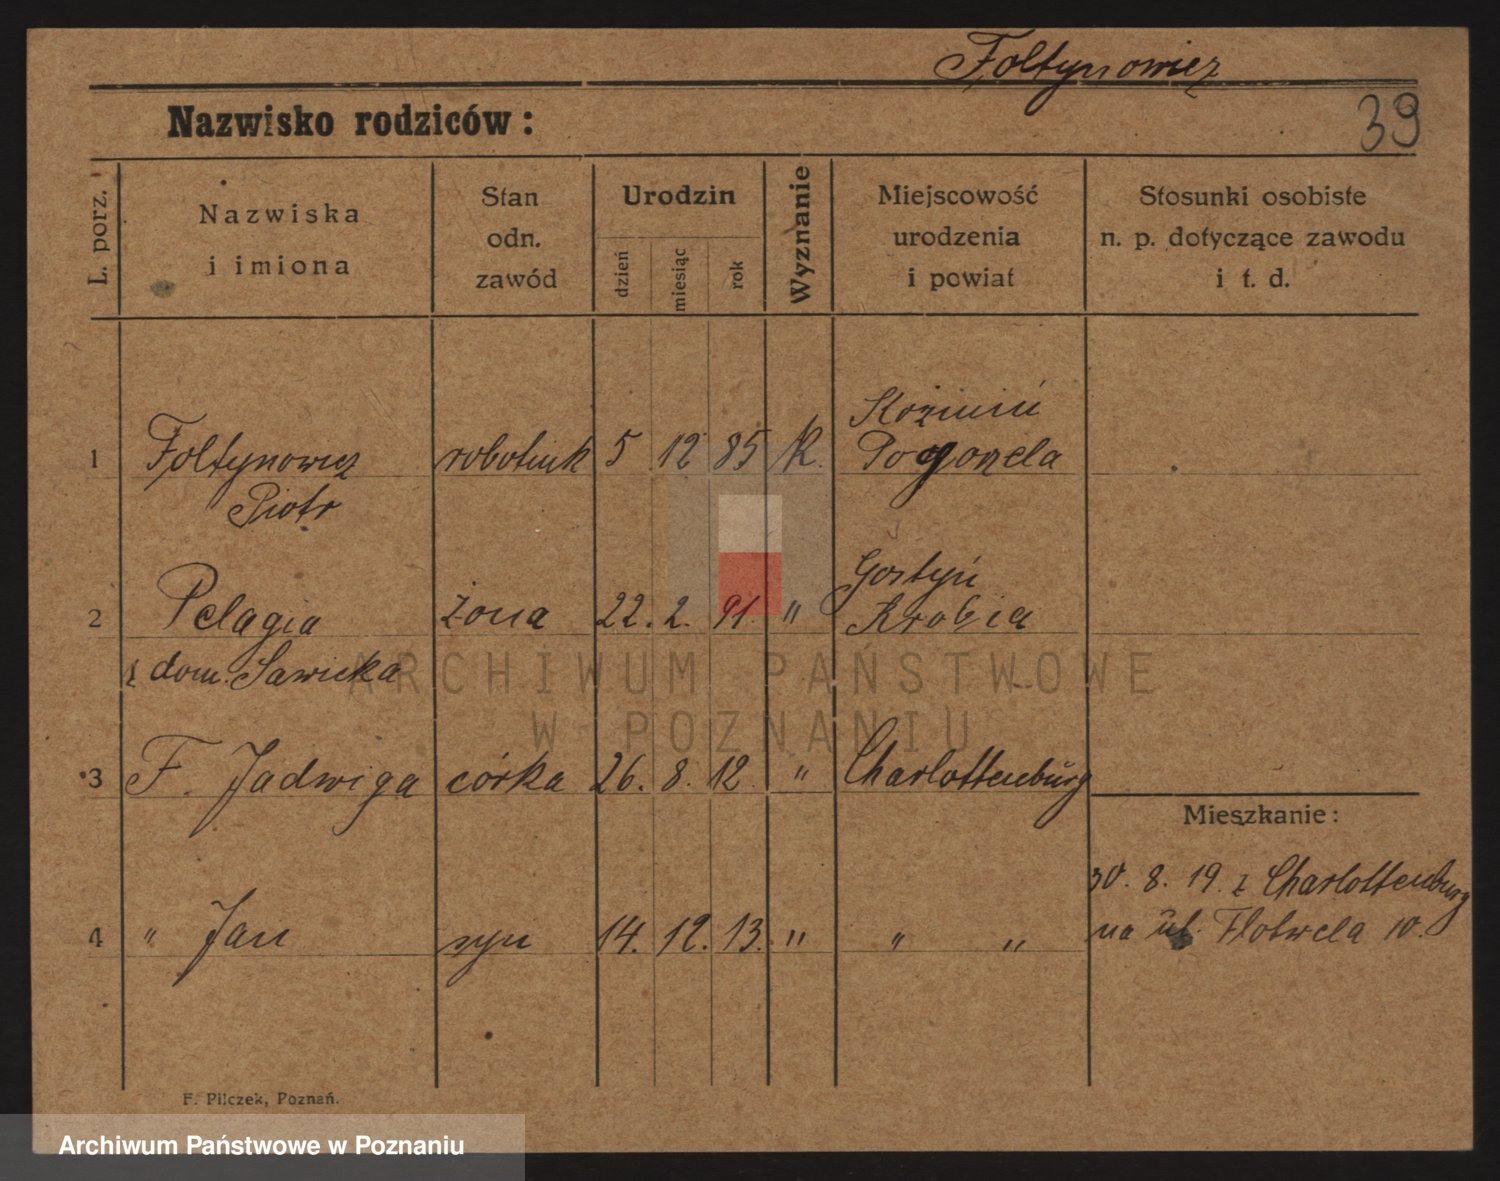 Foltynowicz
39
Nazwisko rodziców:
L. porz.
Nazwiska
i imiona
Stan
odn.
zawód
Urodzin
dzień
miesiąc
rok
Wyznanie
Miejscowość
urodzenia
i powiat
Stosunki osobiste
n. p. dotyczące zawodu
i t. d.
Koźmin
1 Foltynowicz robotnik 5 12 85 K. Pogorzela
Piotr
Gostyń
2 Pelagia żona 22. 2. 91. " Krobia
z dom. Sawicka
3 F. Jadwiga córka 26. 8. 12. " Charlottenburg
Mieszkanie:
30. 8. 19. z Charlottenburg
4 " Jan syn 14. 12. 13. " " " na ul. Flotwela 10.
F. Pilczek, Poznań.
ARCHIWUM PAŃSTWOWE
W POZNANIU
Archiwum Państwowe w Poznaniu